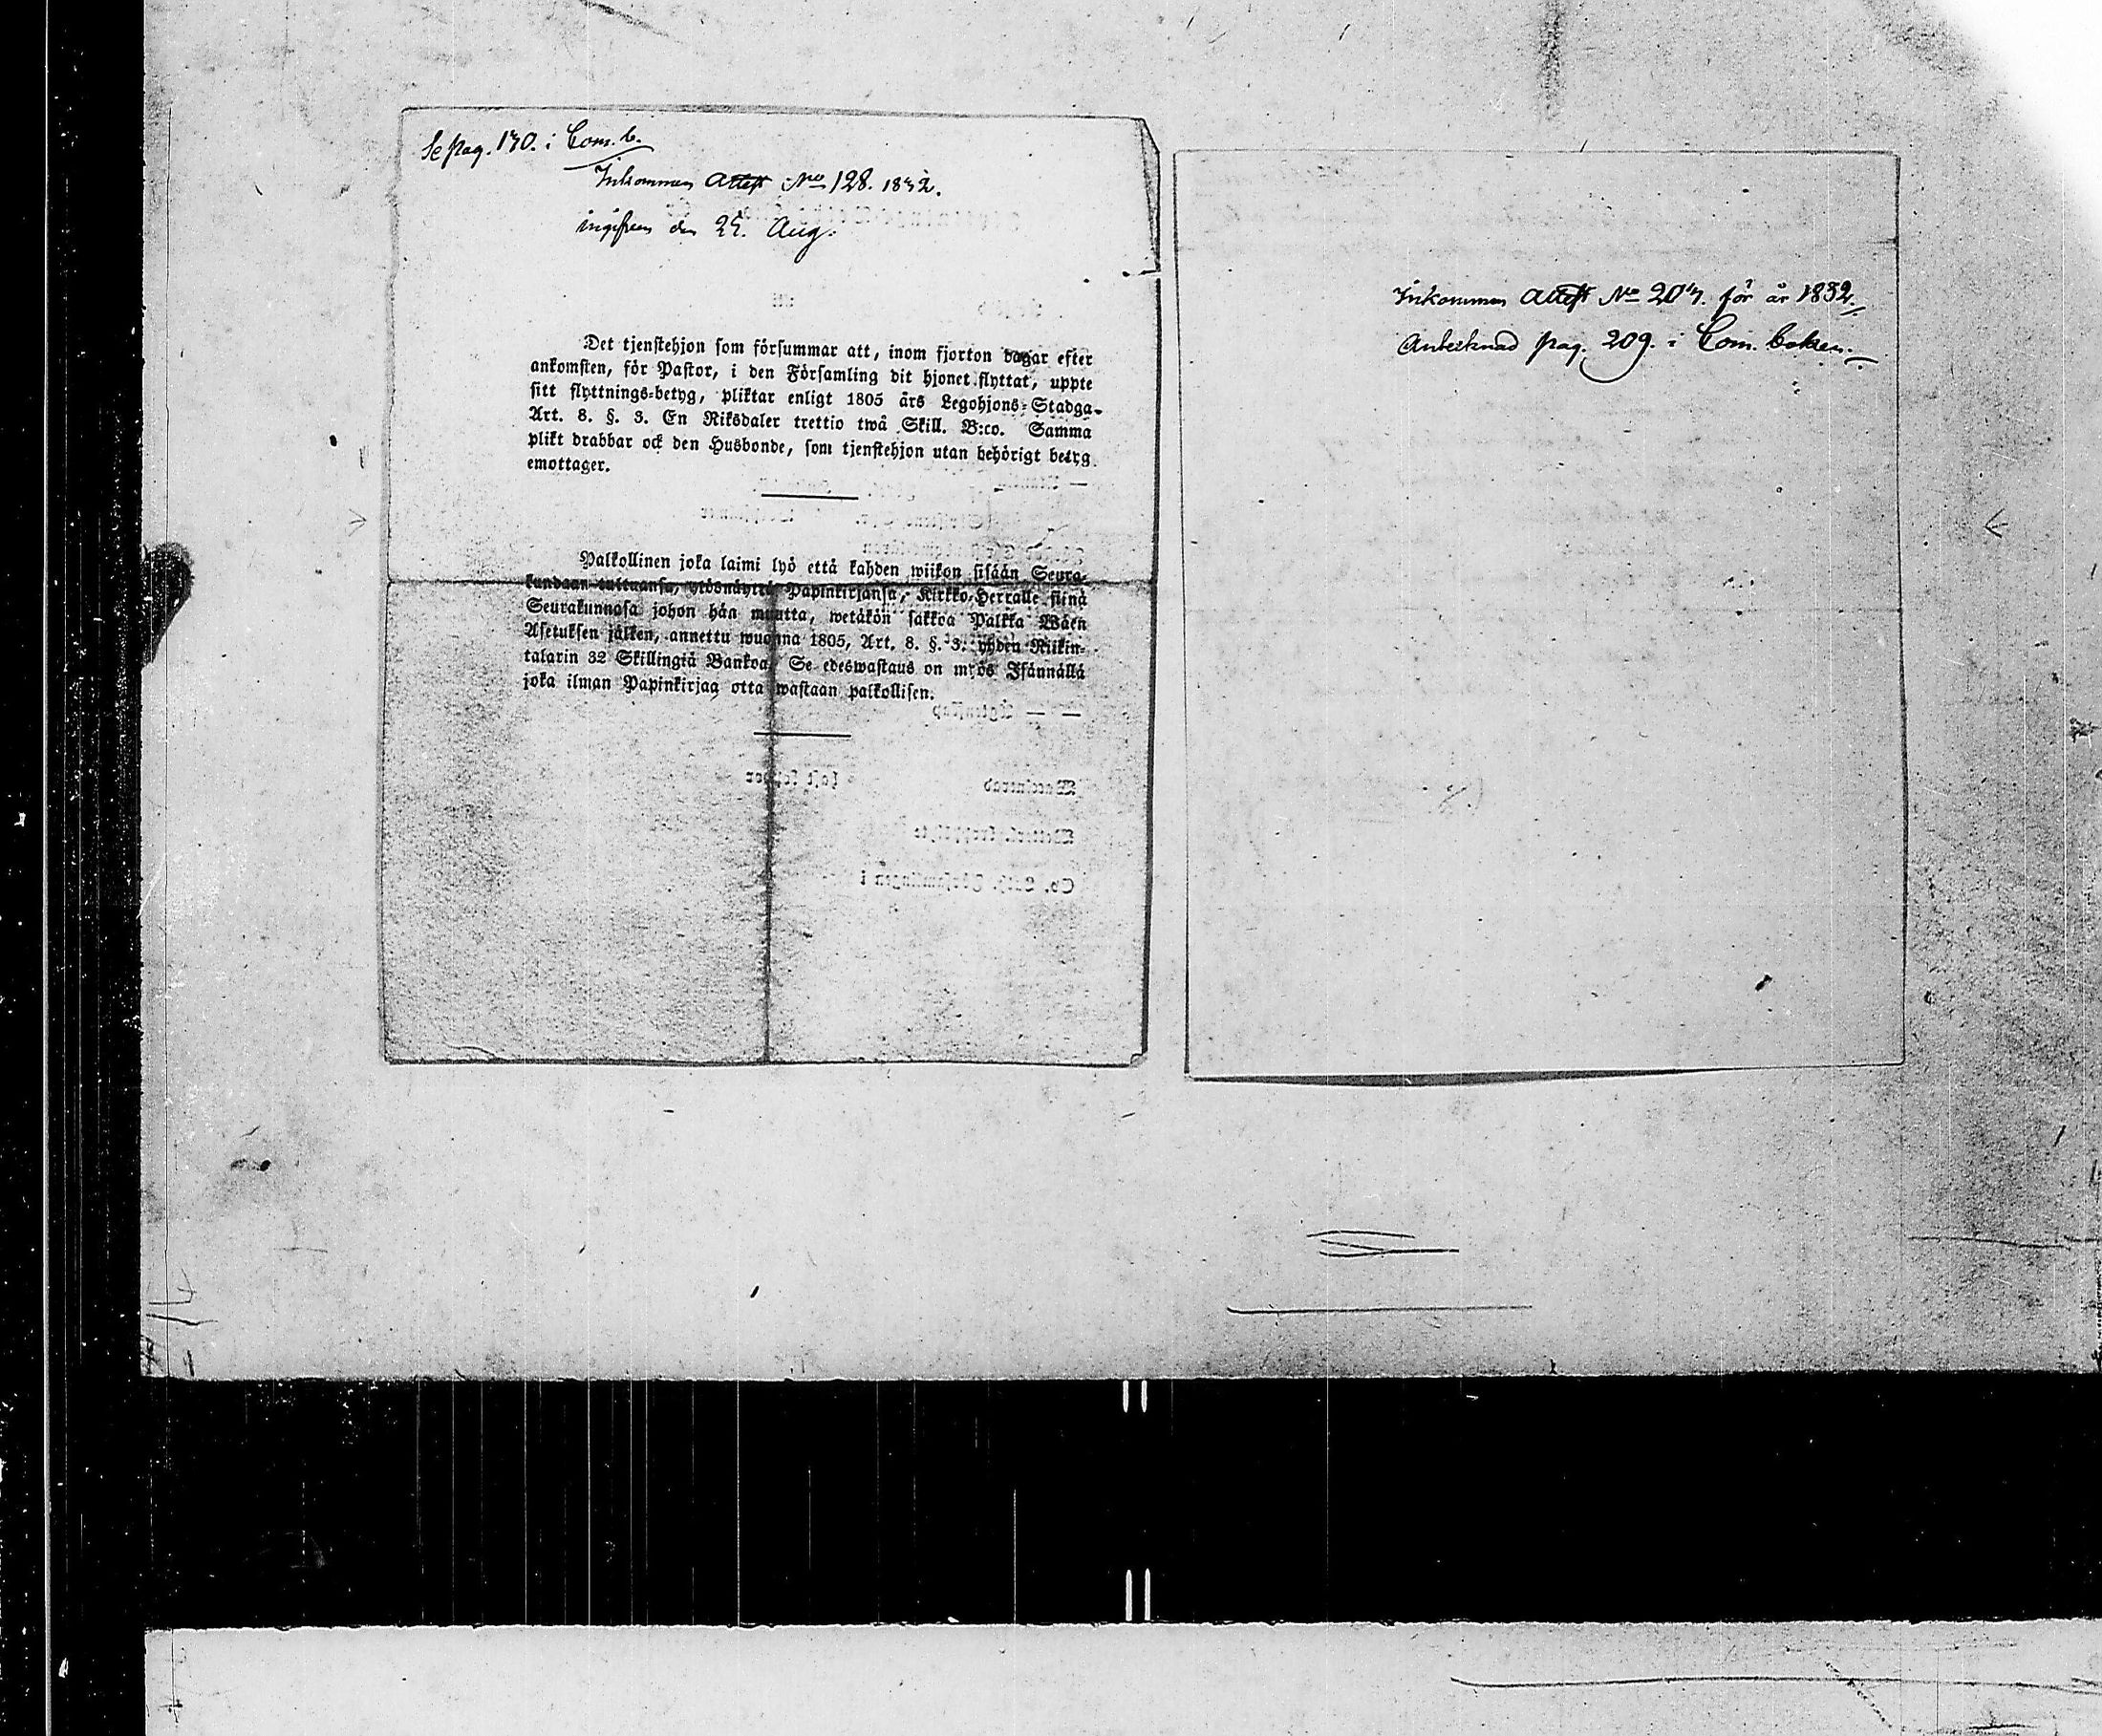 Se pag. 170. i Com. b.
Inkommen Attest No 128. 1832.
ingifven den 25. Aug.
Det tjenstehjon som försummar att, inom fjorton dagar efter
ankomsten, för Pastor, i den Församling dit hjonet flyttat, uppte
sitt flyttnings-betyg, pliktar enligt 1805 års Legohjons-Stadga
Art. 8. §. 3. En Riksdaler trettio twå Skill. B:co. Samma
plikt drabbar ock den Husbonde, som tjenstehjon utan behörigt betyg
emottager.
Palkollinen joka laimi lyö että kahden wiikon sisään Seura-
kundaan tultuansa, ylösnäyttä Papinkirjansa, Kirkko-Herralle siinä
Seurakunnasa johon hän muutta, wetäkön sakkoa Palkka Wäen
Asetuksen jälken, annettu wuonna 1805, Art. 8. §. 3. yhden Riikin-
talarin 32 Skillingiä Bankoa. Se edeswastaus on myös Isännällä
joka ilman Papinkirjaa otta wastaan palkollisen.
Inkommen Attest No 207. för år 1832.
Antecknad pag. 209. i Com. boken.